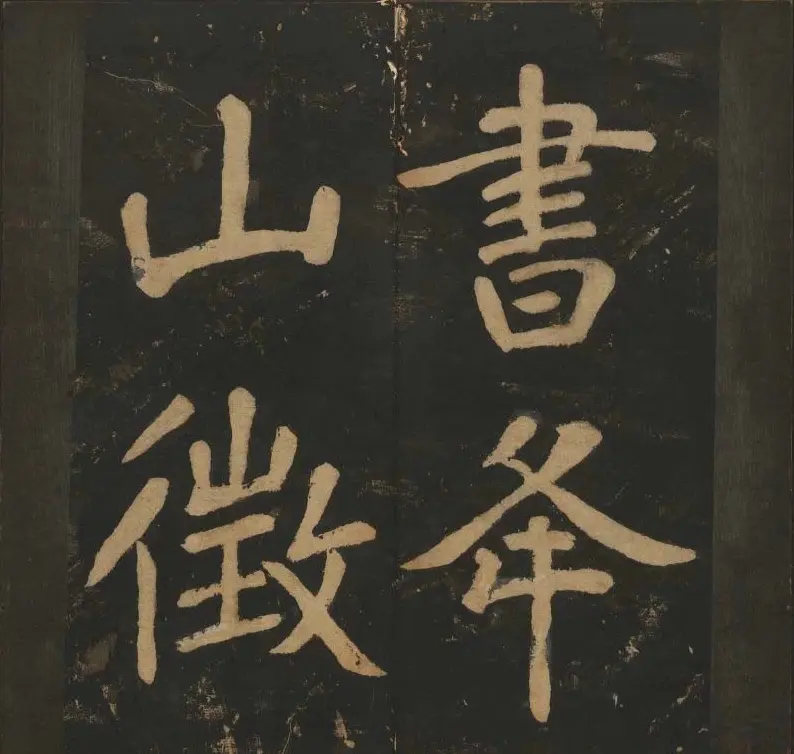 書夅
山徵